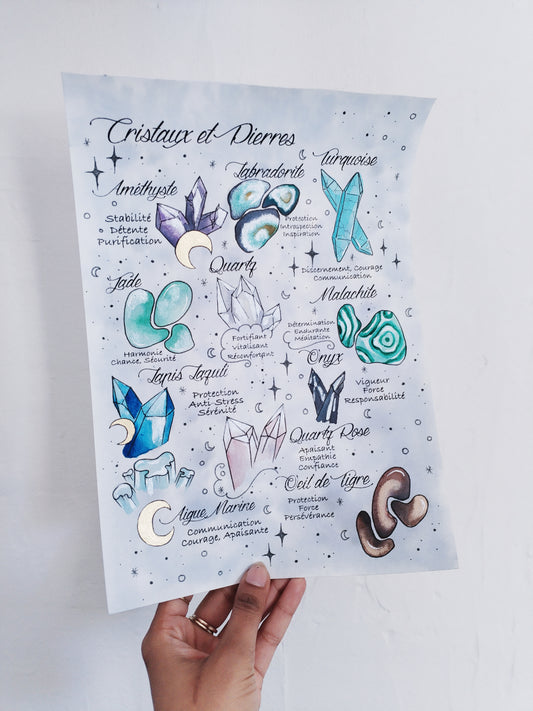 Cristaux et Pierres
Améthyste
Stabilité
Détente
Purification
Labradorite
Protection
Introspection
Inspiration
Turquoise
Discernement, Courage
Communication
Jade
Harmonie
Chance, Sécurité
Quartz
Fortifiant
Vitalisant
Réconfortant
Malachite
Détermination
Endurante
Méditation
Lapis Lazuli
Protection
Anti Stress
Sérénité
Onyx
Vigueur
Force
Responsabilité
Quartz Rose
Apaisant
Empathie
Confiance
Aigue Marine
Communication
Courage, Apaisante
Oeil de Tigre
Protection
Force
Persévérance